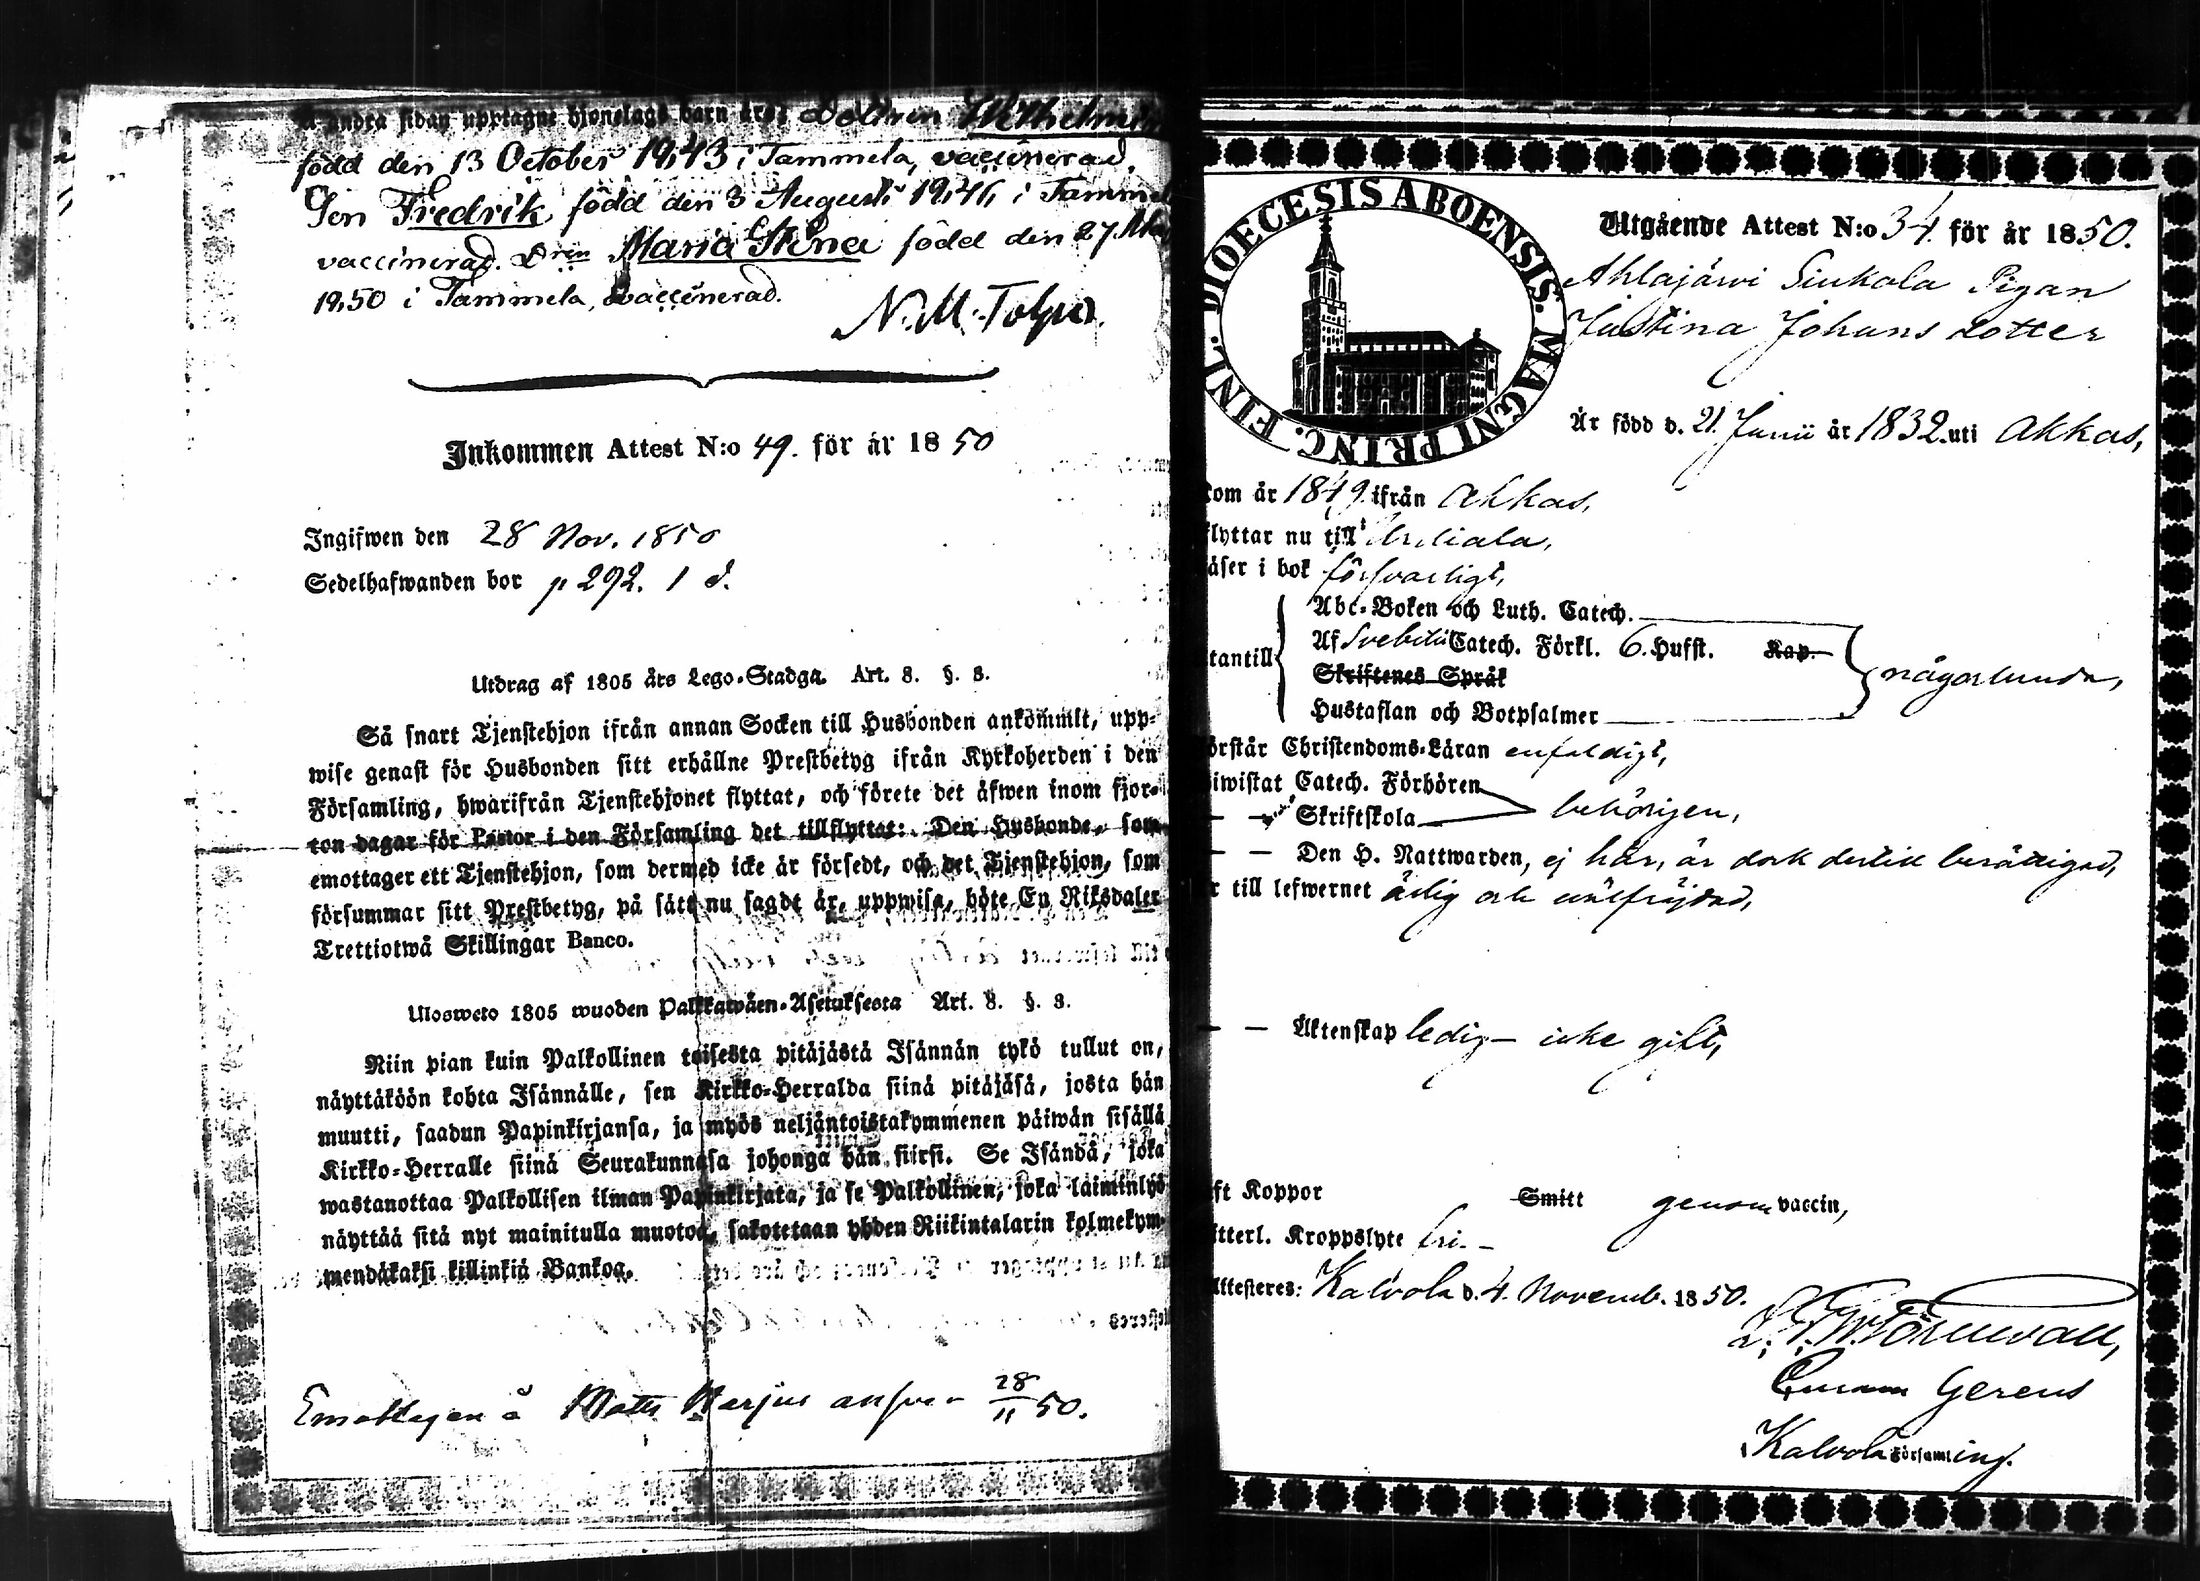 å andra sidan upptagne hjonelags barn äro: Dottren Wilhelmin
född den 13 October 1843 i Tammela, vaccinerad.
Son Fredrik född den 3 Augusti 1846, i Tammel
vaccinerad. Dren Maria Stina född den 27 Ma
1850 i Tammela, vaccinerad.
N. M. Tolpo.
Inkommen Attest N:o 49. för år 1850
Ingifwen den 28 Nov. 1850
Sedelhafwanden bor p 292. 1 d.
Utdrag af 1805 års Lego-Stadga. Art. 8. §. 3.
Så snart Tjenstehjon ifrån annan Socken till Husbonden ankommit, upp-
wise genast för Husbonden sitt erhållne Prestbetyg ifrån Kyrkoherden i den
Församling, hwarifrån Tjenstehjonet flyttat, och förete det äfwen inom fjor-
ton dagar för Pastor i den Församling det tillflyttat: Den Husbonde, som
emottager ett Tjenstehjon, som dermed icke är försedt, och det Tjenstehjon, som
försummar sitt Prestbetyg, på sätt nu sagdt är, uppwisa, böte En Riksdaler
Trettiotwå Skillingar Banco.
Ulosweto 1805 wuoden Palkkawäen-Asetuksesta Art. 8. §. 3.
Niin pian kuin Palkollinen toisesta pitäjästä Isännän tykö tullut on,
näyttäköön kohta Isännälle, sen Kirkko-Herralda siinä pitäjäsä, josta hän
muutti, saadun Papinkirjansa, ja myös neljäntoistakymmenen päiwän sisällä
Kirkko-Herralle siinä Seurakunnasa johonga hän siirsi. Se Isändä, joka
wastanottaa Palkollisen ilman Papinkirjata, ja se Palkollinen, joka laiminlyö
näyttää sitä nyt mainitulla muotoa, sakotetaan yhden Riikintalarin kolmekym-
mendäkaksi killinkiä Bankoa.
Emottagen å Matts Harjus ansvar 28/11 50.
DIOECESIS ABOENSIS. MAGNI PRINC. FINL.
Utgående Attest N:o 34. för år 1850.
Ahlajärvi Sinkola Pigan
Justina Johans dotter
Är född d. 21. Junii år 1832. uti Akkas,
kom år 1849. ifrån Akkas,
flyttar nu till Urdiala,
läser i bok försvarligt,
Abc-Boken och Luth. Catech.
Af Svebilii Catech. Förkl. 6. Hufst. Kap.
tantill
någorlunda,
Skriftenes Språk
Hustaflan och Botpsalmer
örstår Christendoms-Läran enfaldigt,
iwistat Catech. Förhören
behörigen,
— — Skriftskola
— — Den H. Nattwarden, ej här, är dock dertill berättigad,
r till lefwernet ärlig och wälfrejdad,
— — Äktenskap ledig – icke gift,
ft Koppor Smitt genom vaccin,
tterl. Kroppslyte fri. –
Attesteres: Kalvola d. 4. Novemb. 1850.
Curam Gerens
Kalvola Församling.